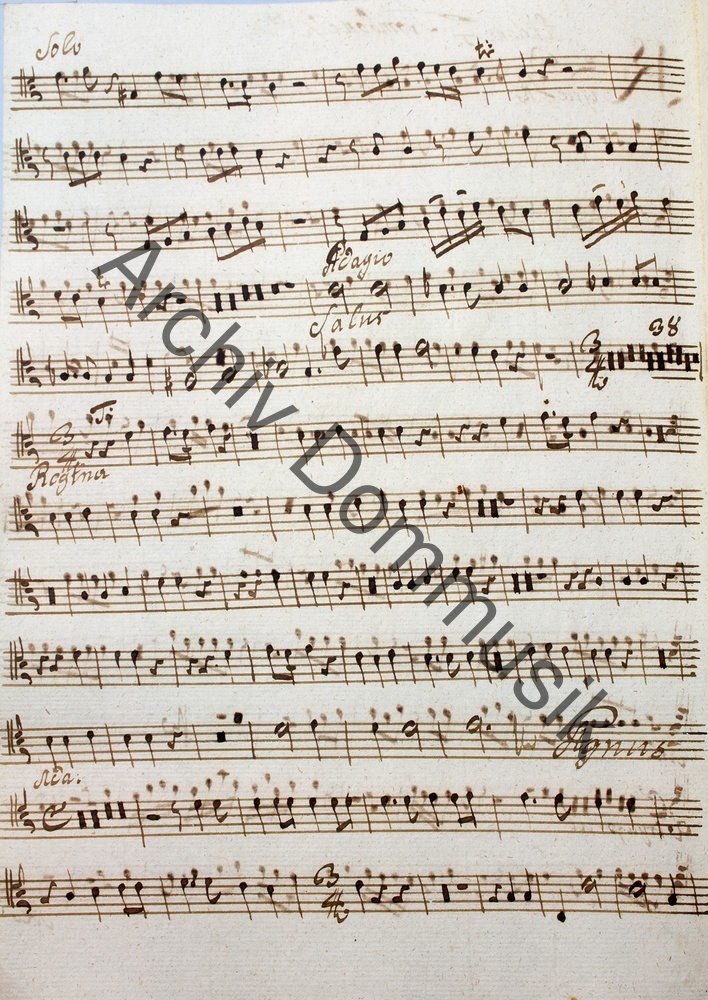 Solo
ti:
Adagio
Salus
3/4 38
3/4 Ti
Regina
Agnus
Ada:
3/4
Archiv Dommusik